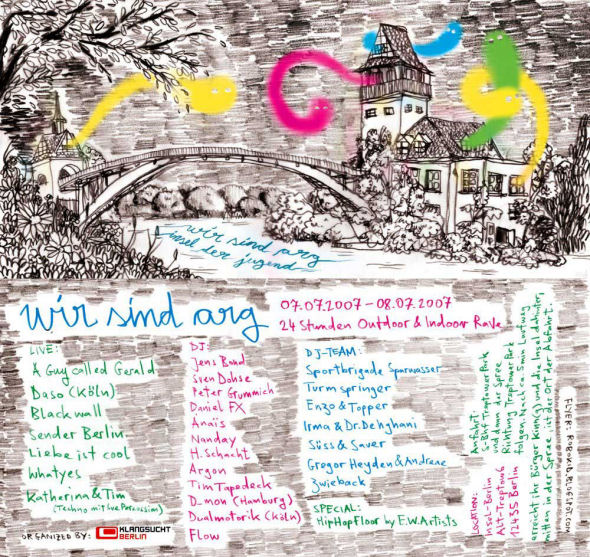 wir sind arg
insel der jugend
wir sind arg
07.07.2007 - 08.07.2007
24 Stunden Outdoor & Indoor Rave
LIVE:
A Guy called Gerald
Daso (Köln)
Blackwall
Sender Berlin
Liebe ist cool
Whatyes
Katharina & Tim
(Techno mit live Percussion)
ORGANIZED BY:
KLANGSUCHT
BERLIN
DJ:
Jens Bond
Sven Dohse
Peter Grummich
Daniel FX
Anaïs
Nanday
H. Schacht
Argon
Tim Tapedeck
D-mon (Hamburg)
Dualmotorik (Köln)
Flow
DJ-TEAM:
Sportbrigade Sparwasser
Turmspringer
Enzo & Topper
Irma & Dr. Dehghani
Süss & Sauer
Gregor Heyden & Andreae
Zwieback
SPECIAL:
HipHopFloor by E.W.Artists
LOCATION:
Insel-Berlin
Alt-Treptow 6
12435 Berlin
Anfahrt:
S-Bhf Treptower Park
und dann der Spree
Richtung Treptower Park
folgen. Nach ca. 5min Laufweg
erreicht ihr Bürger Kinn(g) und die Insel dahinter,
mitten in der Spree, ist der Ort der Abfahrt.
FLYER: ROBOX-B.BLOGSPOT.COM